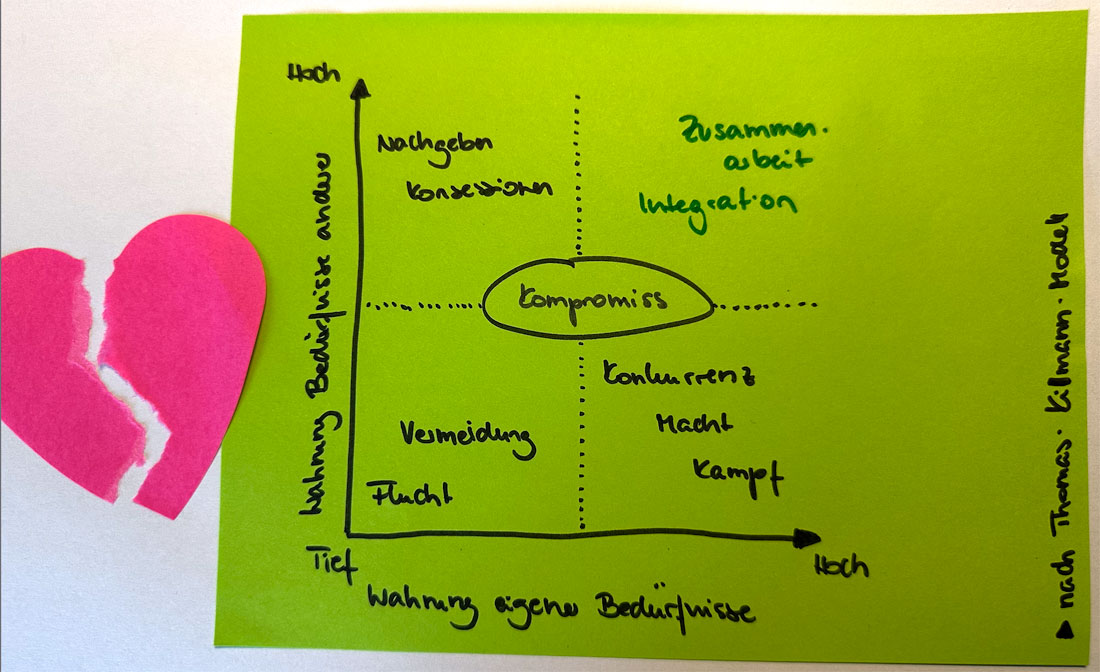 Hoch
Nachgeben
Konzessionen
Zusammen-
arbeit
Integration
Wahrung Bedürfnisse anderer
Kompromiss
Konkurrenz
Macht
Kampf
Vermeidung
Flucht
Tief
Hoch
Wahrung eigener Bedürfnisse
nach Thomas-Kilmann-Modell